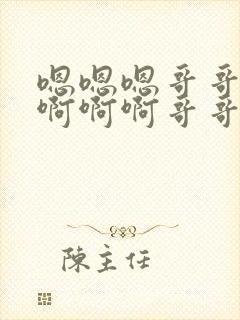 嗯嗯嗯哥哥
啊啊啊哥哥
陳主任